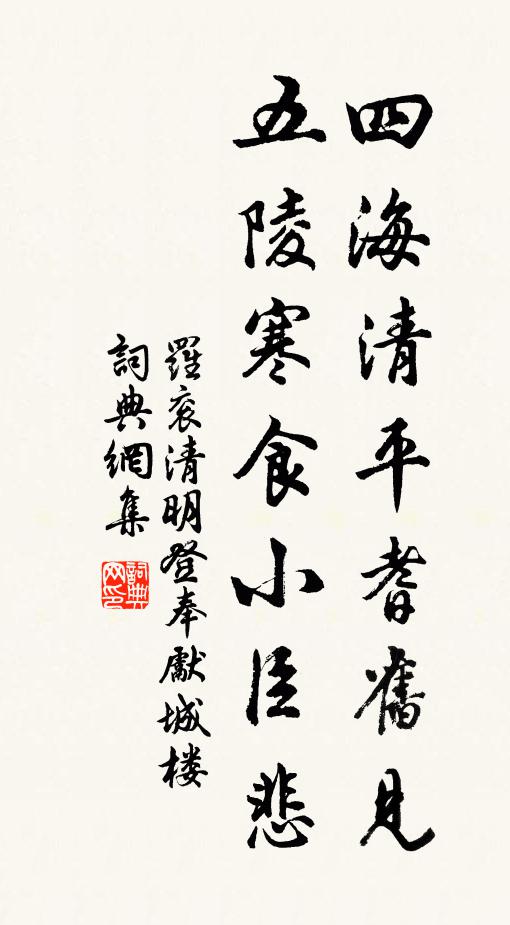 四海清平耆舊見
五陵寒食小臣悲
羅衮清明登奉獻城楼
詞典網集
詞典网印